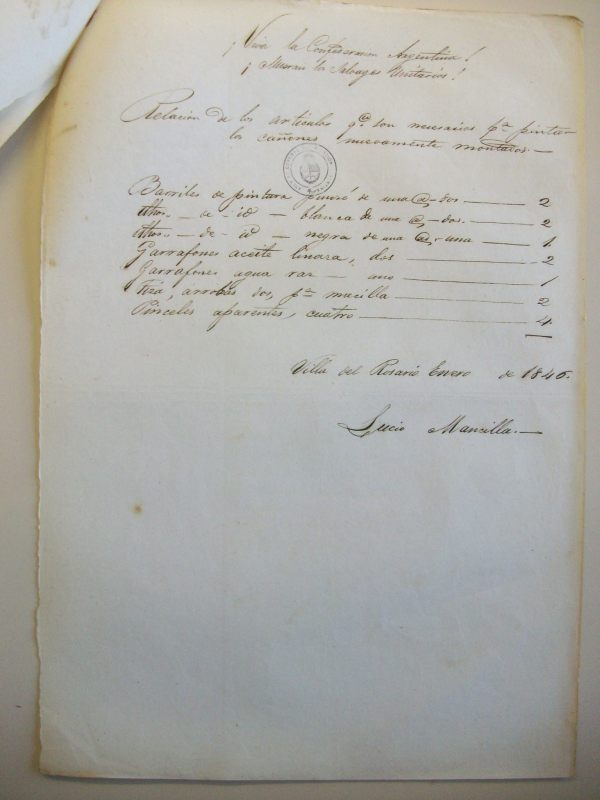 ¡Viva la Confederacion Argentina!
¡Mueran los Salvages Unitarios!
Relacion de los articulos qe. son necesarios pa. pintar
los cañones nuevamente montados.—
Barriles de pintura punzó de una @, dos — 2
de - id — blanca de una @, - dos. — 2
de - id — negra de una @, - una — 1
Garrafones aceite linaza, dos — 2
Garrafones agua raz — uno — 1
Tiza, arrobas dos, pa. macilla — 2
Pinceles aparentes, cuatro — 4
Villa del Rosario Enero de 1846.
Lucio Mancilla.—